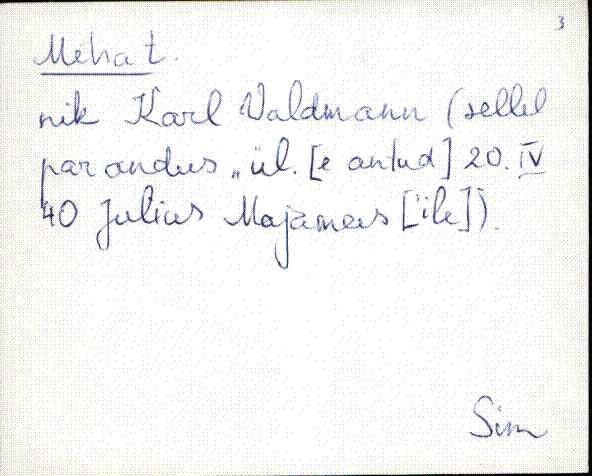 3
Mehat.
nik Karl Waldmann (sellel
parandus „ül. [e antud] 20. IV
40 Julius Majamees['ile]).
Sim